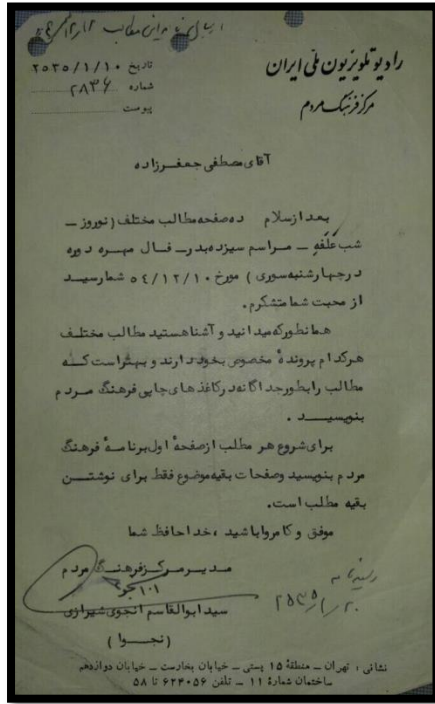 رادیو تلویزیون ملی ایران
مرکز فرهنگ مردم
تاریخ ۲۵۳۵/۱/۱۰
شماره ۲۸۳۶
پیوست
آقای مصطفی جعفرزاده
بعد از سلام ده صفحه مطالب مختلف ( نوروز –
شب عَلَفِه – مراسم سیزده بدر – فال مهره دوره
در چهارشنبه سوری ) مورخ ۵۴/۱۲/۱۰ شما رسید
از محبت شما متشکرم .
همانطور که میدانید و آشنا هستید مطالب مختلف
هر کدام پروندهٔ مخصوص بخود دارند و بهتر است کـه
مطالب را بطور جداگانه در کاغذ های چاپی فرهنگ مردم
بنویسیـــد .
برای شروع هر مطلب از صفحهٔ اول برنامهٔ فرهنگ
مردم بنویسید و صفحات بقیه موضوع فقط برای نوشتــن
بقیه مطلب است .
موفق و کامروا باشید ، خدا حافظ شما
مدیر مرکز فرهنگ مردم
سید ابوالقاسم انجوی شیرازی
( نجـــوا )
نشانی : تهران – منطقهٔ ۱۵ پستی – خیابان بخارست – خیابان دوازدهم
ساختمان شمارهٔ ۱۱ – تلفن ۶۲۴۰۵۶ تا ۵۸